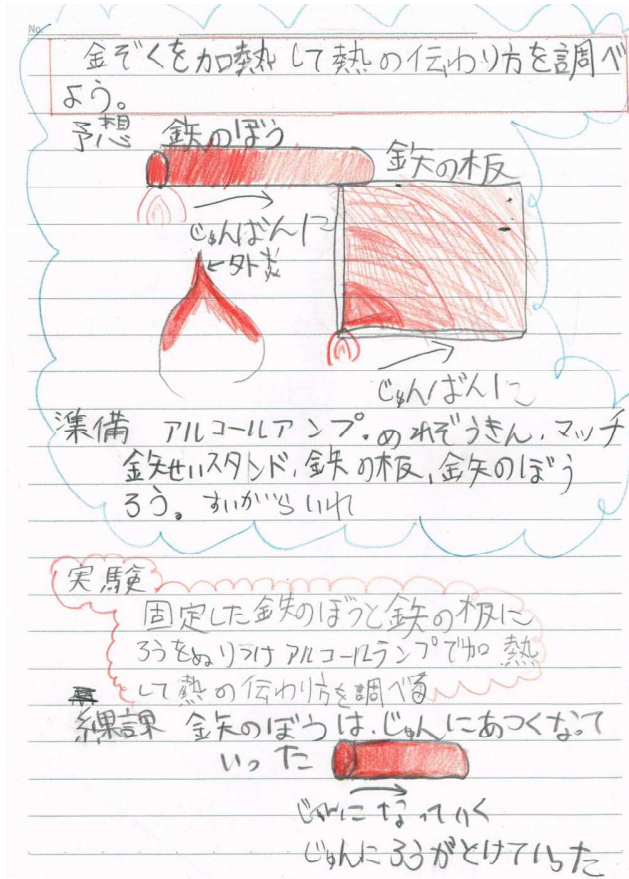 No.
金ぞくを加熱して熱の伝わり方を調べ
よう。
予想 鉄のぼう
鉄の板
じゅんばんに
←外炎
じゅんばんに
準備 アルコールアンプ.ぬれぞうきん、マッチ
鉄せいスタンド,鉄の板,鉄のぼう
ろう。すいがらいれ
実験
固定した鉄のぼうと鉄の板に
ろうをぬりつけアルコールランプで加熱
して熱の伝わり方を調べる
結課 鉄のぼうは、じゅんにあつくなって
いった
じゅんになっていく
じゅんにろうがとけていった